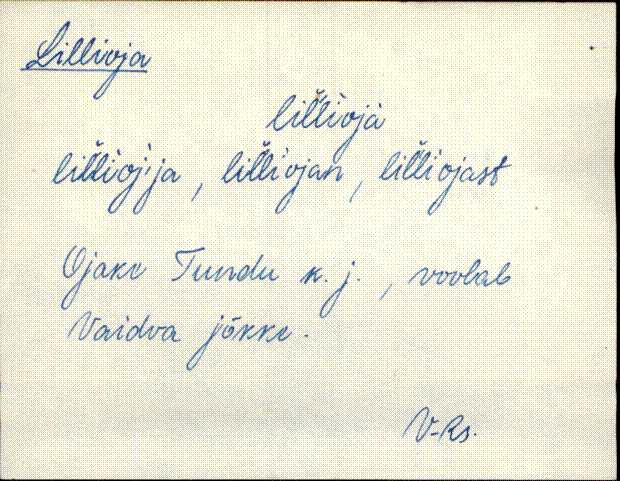 Lillioja
lil̆l̆ioja
lil̆l̆ioj'ja, lil̆l̆iojan, lil̆l̆iojast
Ojake Tundu k. j., voolab
Vaidva jõkke.
V-Rs.